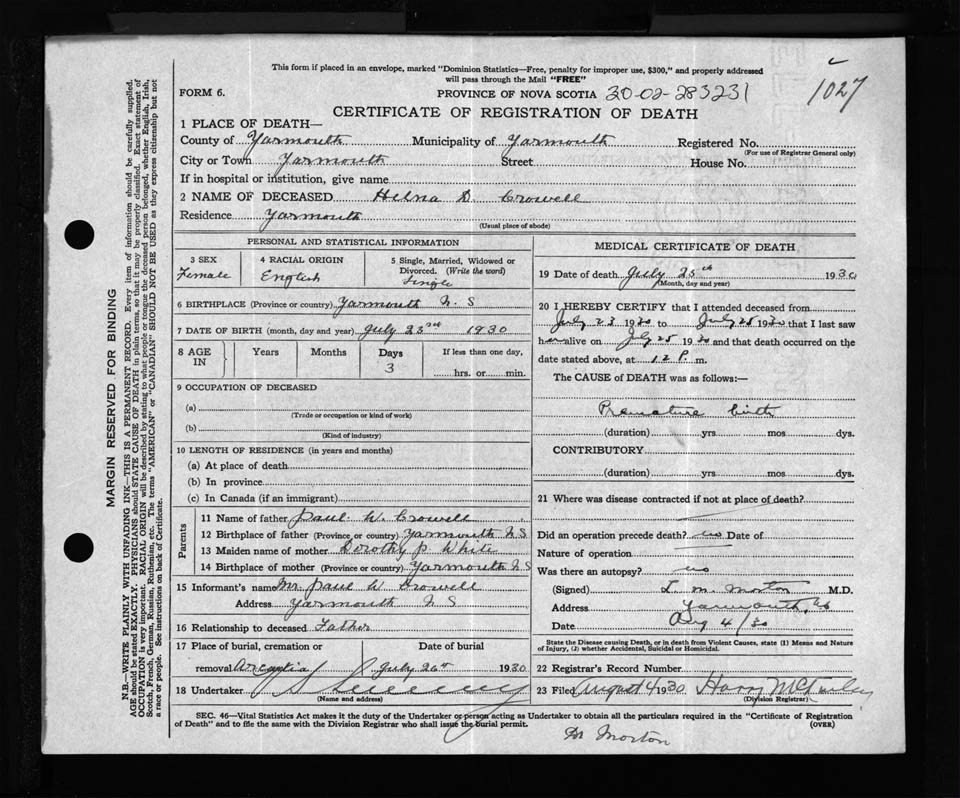 This form if placed in an envelope, marked "Dominion Statistics—Free, penalty for improper use, $300," and properly addressed
will pass through the Mail "FREE"
1027
FORM 6.
PROVINCE OF NOVA SCOTIA 30-02-283231
CERTIFICATE OF REGISTRATION OF DEATH
1 PLACE OF DEATH—
County of Yarmouth Municipality of Yarmouth Registered No.
(For use of Registrar General only)
City or Town Yarmouth Street House No.
If in hospital or institution, give name
2 NAME OF DECEASED Helna D. Crowell
Residence Yarmouth
(Usual place of abode)
PERSONAL AND STATISTICAL INFORMATION
3 SEX
Female
4 RACIAL ORIGIN
English
5 Single, Married, Widowed or
Divorced. (Write the word)
Single
6 BIRTHPLACE (Province or country) Yarmouth N. S
7 DATE OF BIRTH (month, day and year) July 23rd 1930
8 AGE IN
Years
Months
Days
3
If less than one day,
hrs. or min.
9 OCCUPATION OF DECEASED
(a)
(Trade or occupation or kind of work)
(b)
(Kind of industry)
10 LENGTH OF RESIDENCE (in years and months)
(a) At place of death
(b) In province
(c) In Canada (if an immigrant)
Parents
11 Name of father Paul W. Crowell
12 Birthplace of father (Province or country) Yarmouth N S
13 Maiden name of mother Dorothy P. White
14 Birthplace of mother (Province or country) Yarmouth N S
15 Informant's name Mr. Paul W Crowell
Address Yarmouth N S
16 Relationship to deceased Father
17 Place of burial, cremation or
removal Arcadia
Date of burial
July 26th 1930
18 Undertaker
(Name and address)
MEDICAL CERTIFICATE OF DEATH
19 Date of death July 25th 1930
(Month, day and year)
20 I HEREBY CERTIFY that I attended deceased from
July 23 1930 to July 25 1930 that I last saw
her alive on July 25 1930 and that death occurred on the
date stated above, at 12 P. m.
The CAUSE of DEATH was as follows:—
Premature birth
(duration) yrs mos dys.
CONTRIBUTORY
(duration) yrs mos dys.
21 Where was disease contracted if not at place of death?
Did an operation precede death? no Date of
Nature of operation
Was there an autopsy? no
(Signed) L. M. Morton M.D.
Address Yarmouth, NS
Date Aug 4/30
State the Disease causing Death, or in death from Violent Causes, state (1) Means and Nature
of Injury, (2) whether Accidental, Suicidal or Homicidal.
22 Registrar's Record Number
23 Filed August 4 1930 Harry
(Division Registrar)
SEC. 46—Vital Statistics Act makes it the duty of the Undertaker or person acting as Undertaker to obtain all the particulars required in the "Certificate of Registration
of Death" and to file the same with the Division Registrar who shall issue the burial permit.
(OVER)
Dr Morton
MARGIN RESERVED FOR BINDING
N.B.—WRITE PLAINLY WITH UNFADING INK—THIS IS A PERMANENT RECORD. Every item of information should be carefully supplied.
AGE should be stated EXACTLY. PHYSICIANS should STATE CAUSE OF DEATH in plain terms, so that it may be properly classified. Exact statement of
OCCUPATION is very important. RACIAL ORIGIN will be described by stating to what people or tongue the deceased person belonged, whether English, Irish,
Scotch, French, German, Russian, Ruthenian, etc. The terms "AMERICAN" or "CANADIAN" SHOULD NOT BE USED as they express citizenship but not
a race or people. See instructions on back of Certificate.